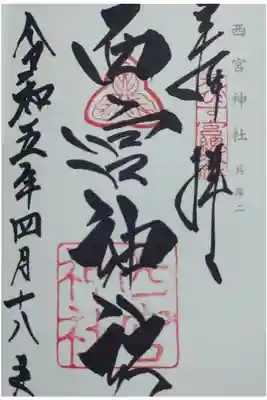 西宮神社 兵庫二
奉拝
西宮神社
西宮神社
令和五年四月十八日